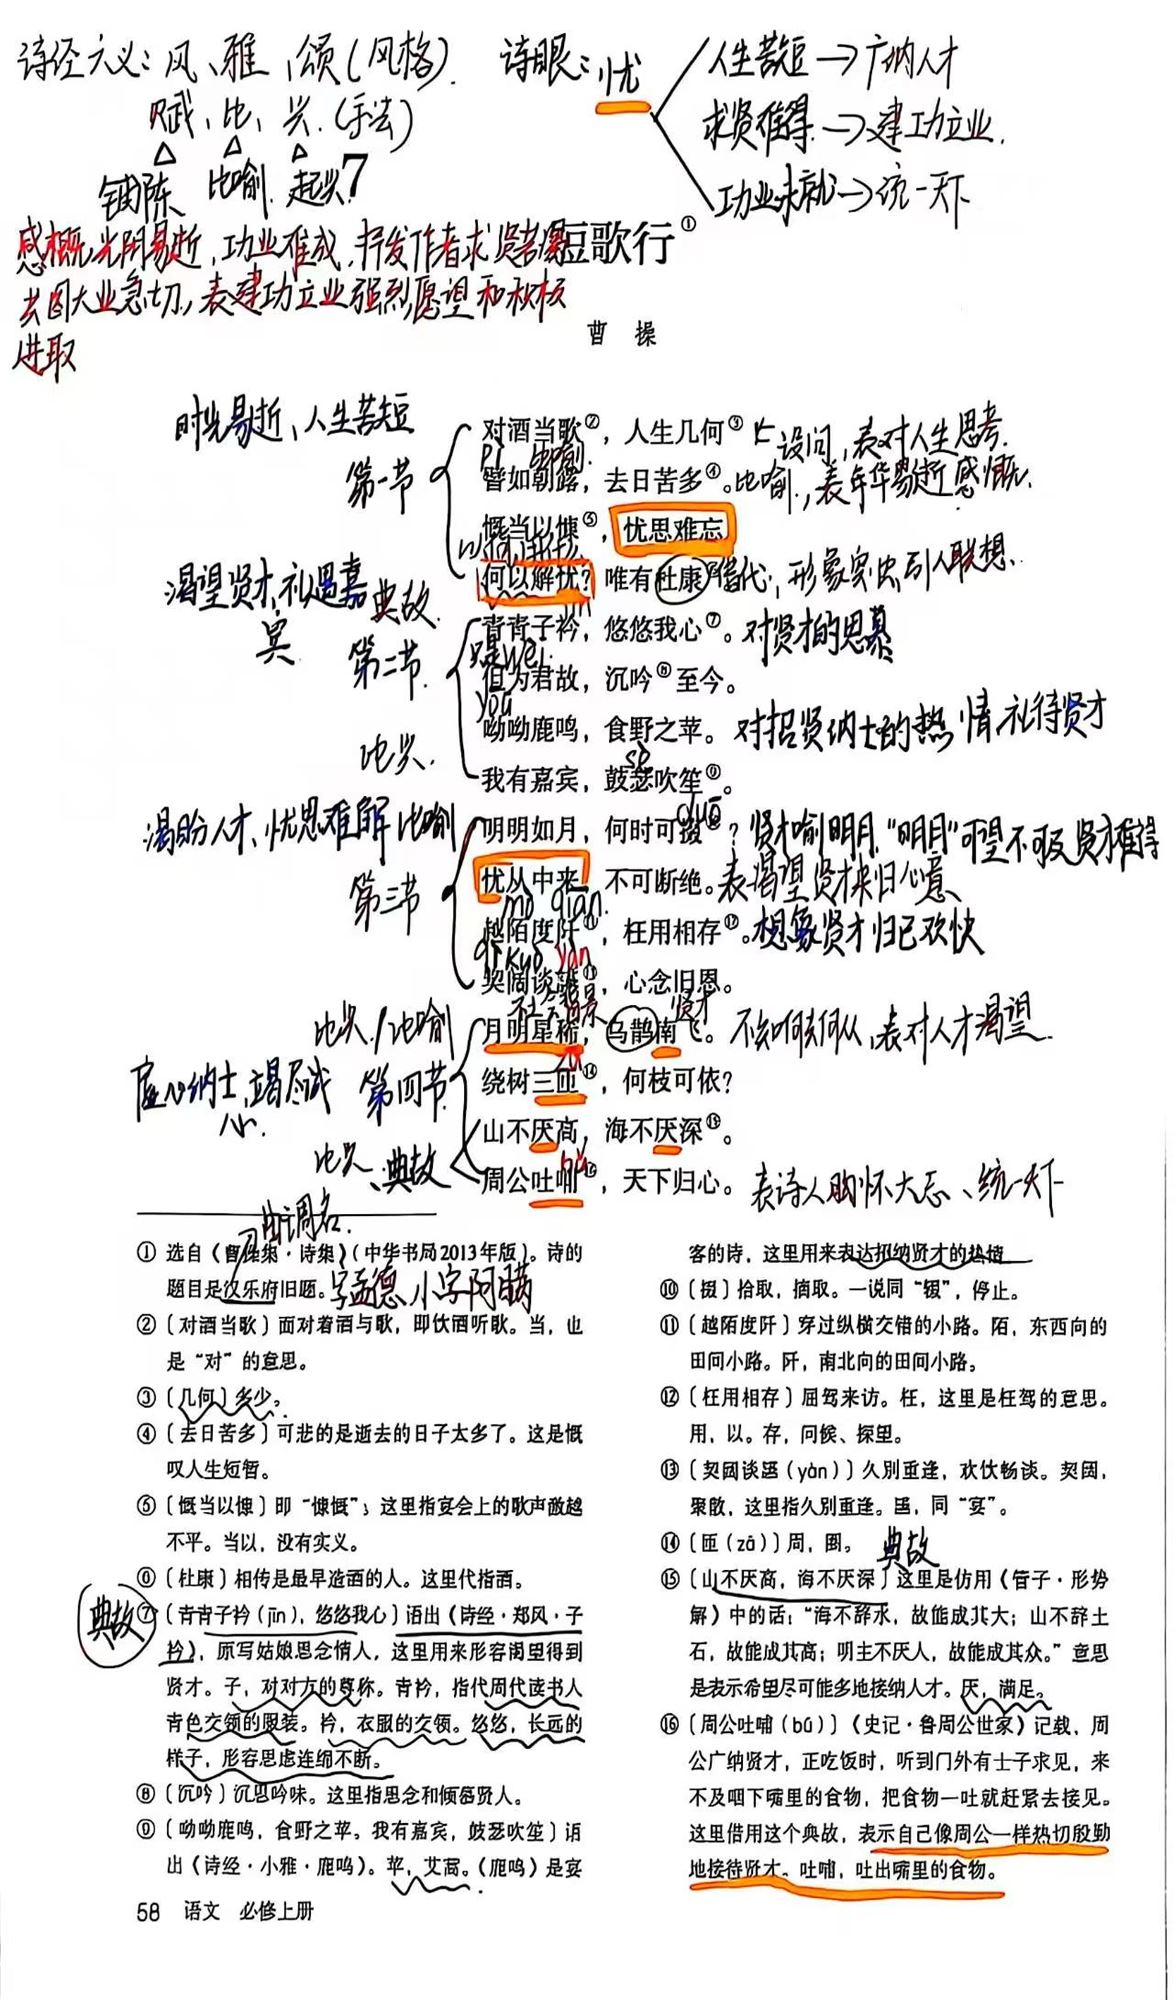 诗经六义：风、雅、颂(风格).
赋、比、兴.(手法)
铺陈 比喻 起兴
诗眼：忧
人生苦短→广纳人才
求贤难得→建功立业.
功业未就→统一天下
7
短歌行①
感概光阴易逝,功业难成,抒发作者求贤若渴
共图大业急切,表建功立业强烈愿望和积极
进取
曹 操
时光易逝、人生苦短
第一节
对酒当歌②，人生几何③？设问,表对人生思考.
pì 比喻.
譬如朝露，去日苦多④。比喻,表年华易逝感慨.
慨当以慷⑤，忧思难忘
何以解忧？唯有杜康⑥借代,形象突出,引人联想.
渴望贤才,礼遇嘉
宾
典故.
第二节.
比兴.
青青子衿，悠悠我心⑦。对贤才的思慕
是wèi.
但为君故，沉吟⑧至今。
yōu
呦呦鹿鸣，食野之苹。对招贤纳士的热情,礼待贤才
sè
我有嘉宾，鼓瑟吹笙⑨。
渴盼人才、忧思难解 比喻
第三节
duō
明明如月，何时可掇⑩？贤才喻明月,“明月”可望不可及,贤才难得
忧从中来，不可断绝。表渴望贤才来归心意
mò qiān.
越陌度阡⑪，枉用相存⑫。想象贤才归己欢快
qì kuò yàn
契阔谈䜩⑬，心念旧恩。
比兴/比喻
贤才
月明星稀，乌鹊南飞。不知何去何从,表对人才渴望.
虚心纳士,竭尽诚
心.
第四节
zā
绕树三匝⑭，何枝可依？
山不厌高，海不厌深⑮。
比兴、典故
bǔ
周公吐哺⑯，天下归心。表诗人胸怀大志、统一天下
曲调名.
① 选自《曹操集·诗集》（中华书局2013年版）。诗的
题目是汉乐府旧题。字孟德,小字阿瞒
②〔对酒当歌〕面对着酒与歌，即饮酒听歌。当，也
是“对”的意思。
③〔几何〕多少。
④〔去日苦多〕可悲的是逝去的日子太多了。这是慨
叹人生短暂。
⑤〔慨当以慷〕即“慷慨”；这里指宴会上的歌声激越
不平。当以，没有实义。
⑥〔杜康〕相传是最早造酒的人。这里代指酒。
典故
⑦〔青青子衿（jīn），悠悠我心〕语出《诗经·郑风·子
衿》，原写姑娘思念情人，这里用来形容渴望得到
贤才。子，对对方的尊称。青衿，指代周代读书人
青色交领的服装。衿，衣服的交领。悠悠，长远的
样子，形容思虑连绵不断。
⑧〔沉吟〕沉思吟味。这里指思念和倾慕贤人。
⑨〔呦呦鹿鸣，食野之苹。我有嘉宾，鼓瑟吹笙〕语
出《诗经·小雅·鹿鸣》。苹，艾蒿。《鹿鸣》是宴
客的诗，这里用来表达招纳贤才的热情。
⑩〔掇〕拾取，摘取。一说同“辍”，停止。
⑪〔越陌度阡〕穿过纵横交错的小路。陌，东西向的
田间小路。阡，南北向的田间小路。
⑫〔枉用相存〕屈驾来访。枉，这里是枉驾的意思。
用，以。存，问候、探望。
⑬〔契阔谈䜩（yàn）〕久别重逢，欢饮畅谈。契阔，
聚散，这里指久别重逢。䜩，同“宴”。
⑭〔匝（zā）〕周，圈。 典故
⑮〔山不厌高，海不厌深〕这里是仿用《管子·形势
解》中的话：“海不辞水，故能成其大；山不辞土
石，故能成其高；明主不厌人，故能成其众。”意思
是表示希望尽可能多地接纳人才。厌，满足。
⑯〔周公吐哺（bǔ）〕《史记·鲁周公世家》记载，周
公广纳贤才，正吃饭时，听到门外有士子求见，来
不及咽下嘴里的食物，把食物一吐就赶紧去接见。
这里借用这个典故，表示自己像周公一样热切殷勤
地接待贤才。吐哺，吐出嘴里的食物。
58 语文 必修上册